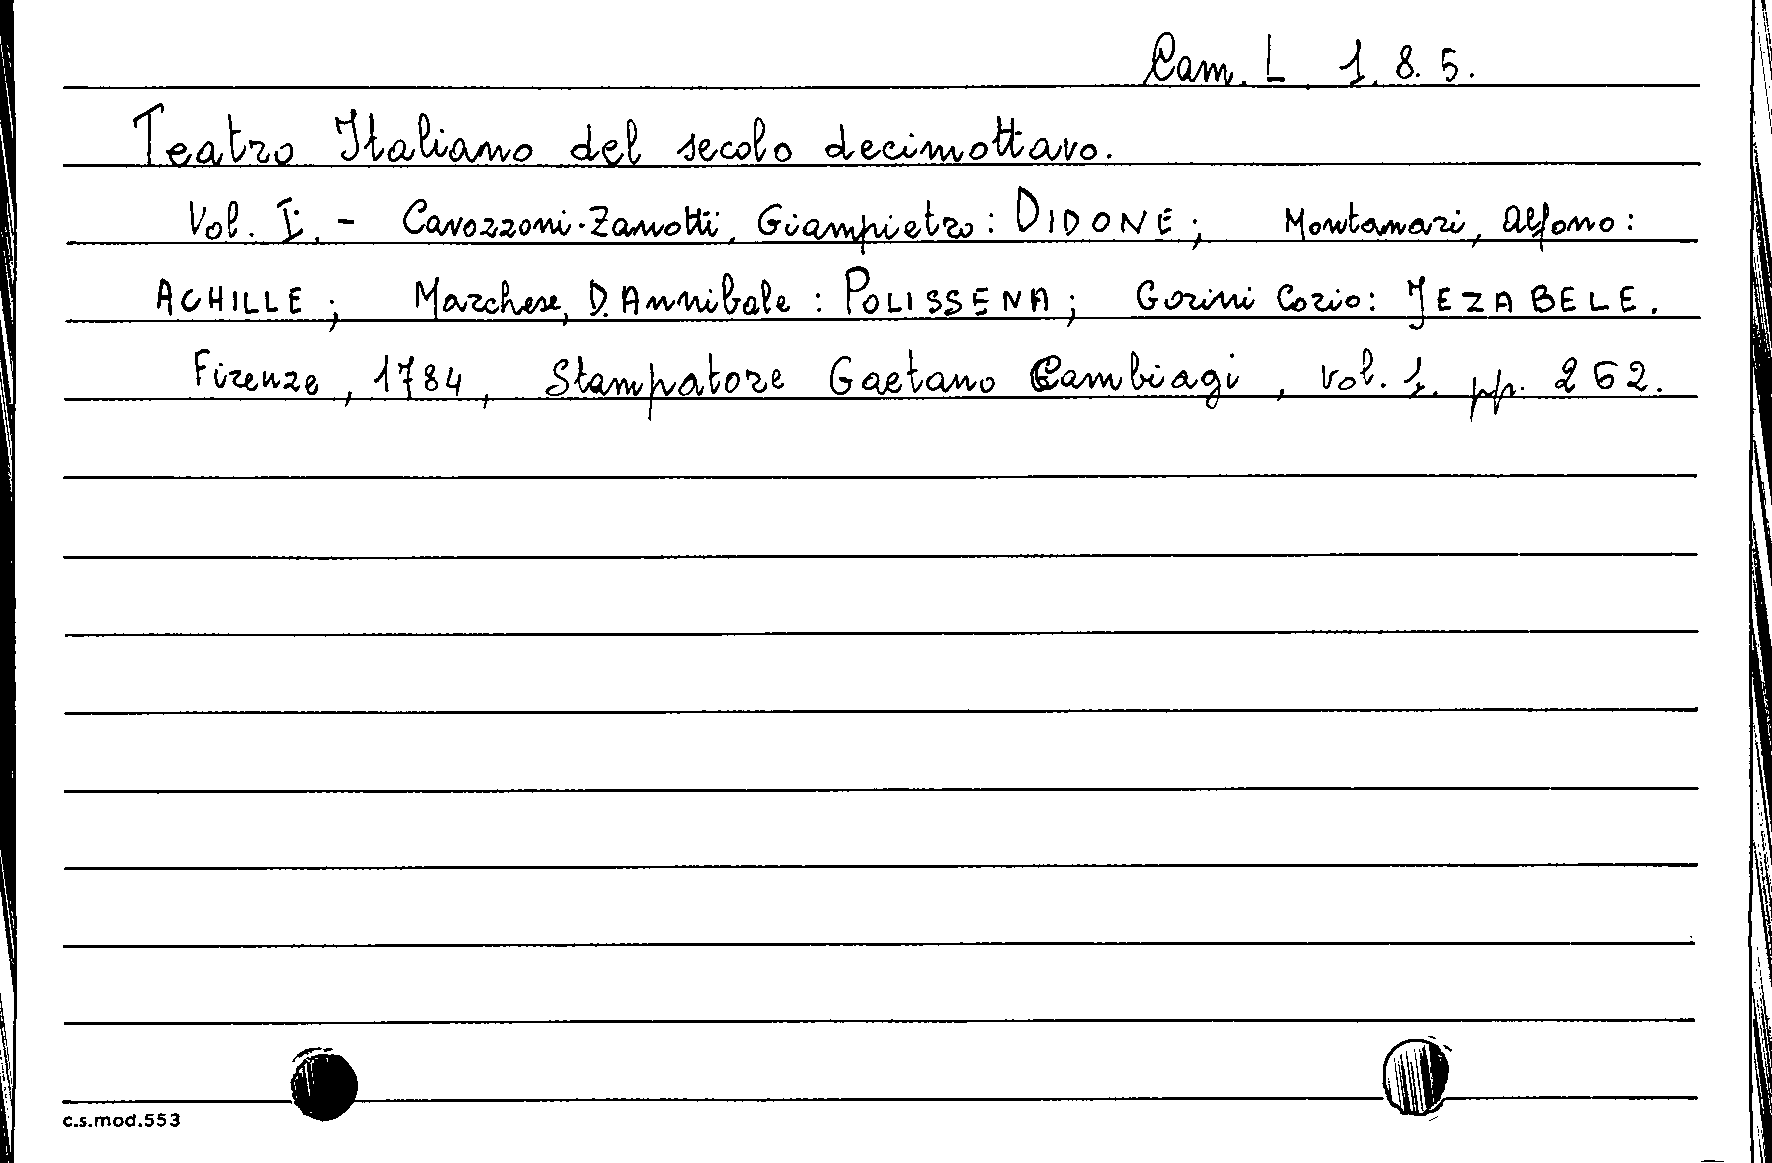 Cam. L. 1. 8. 5.
Teatro Italiano del secolo decimottavo.
Vol. I. - Cavozzoni-Zanotti, Giampietro: DIDONE; Montanari, Alfono:
ACHILLE; Marchese, D. Annibale: POLISSENA; Gorini Corio: JEZABELE.
Firenze, 1784, Stampatore Gaetano Cambiagi, vol. 1. pp. 262.
c.s.mod.553